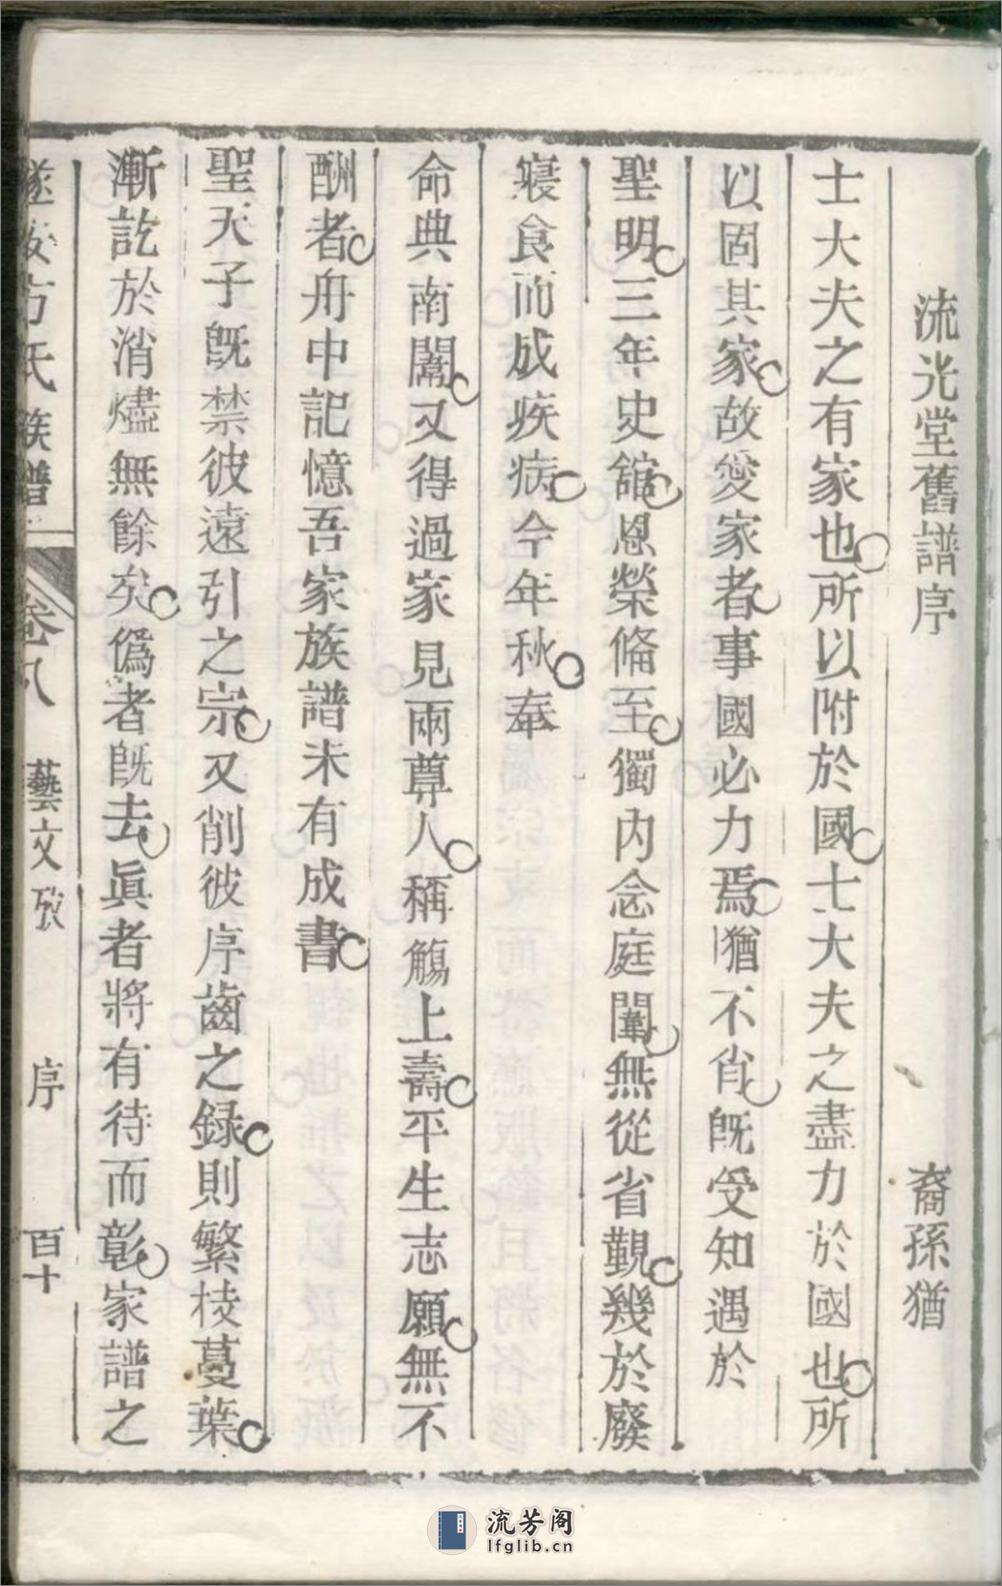 流光堂舊譜序 裔孫猶
士大夫之有家也所以附於國士大夫之盡力於國也所
以固其家故愛家者事國必力焉猶不肖旣受知遇於
聖明三年史舘恩榮偹至獨內念庭闈無從省覲幾於廢
寢食而成疾病今年秋奉
命典南闈又得過家見兩尊人稱觴上壽平生志願無不
酬者舟中記憶吾家族譜未有成書
聖天子旣禁彼遠引之宗又削彼序齒之録則繁枝蔓葉
漸訖於消燼無餘矣僞者旣去眞者將有待而彰家譜之
遂安方氏族譜 卷八 藝文攷 序 百十
流芳阁
lfglib.cn